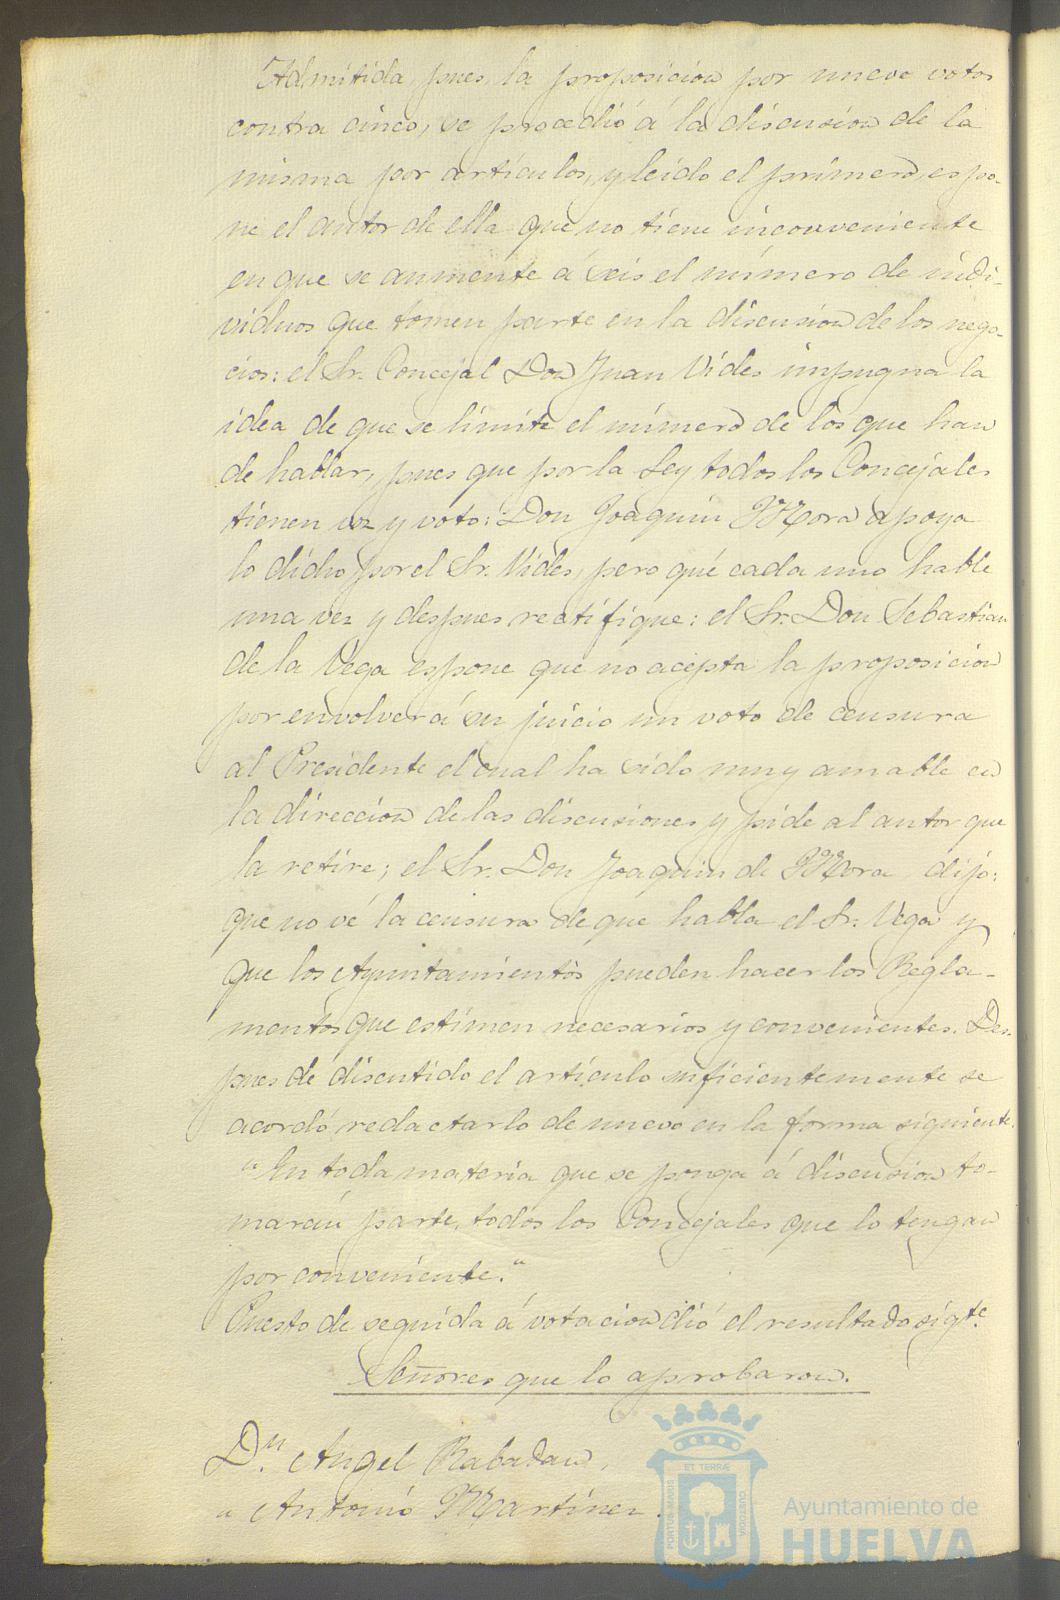 Admitida, pues, la proposicion por nueve votos
contra cinco, se procedió á la discusion de la
misma por artículos, y leido el primero, espo-
ne el autor de ella que no tiene inconveniente
en que se aumente á seis el número de indi-
viduos que tomen parte en la discusion de los nego-
cios: el Sr. Concejal Don Juan Vides impugna la
idea de que se limite el número de los que han
de hablar, pues que por la Ley todos los Concejales
tienen voz y voto: Don Joaquin Mora apoya
lo dicho por el Sr. Vides, pero qué cada uno hable
una vez y despues rectifique: el Sr. Don Sebastian
de la Vega espone que no acepta la proposicion
por envolver á su juicio un voto de censura
al Presidente el cual ha sido muy amable en
la direccion de las discusiones y pide al autor que
la retire; el Sr. Don Joaquin de Mora dijo:
que no vé la censura de que habla el Sr. Vega y
que los Ayuntamientos pueden hacer los Regla-
mentos que estimen necesarios y convenientes. Des-
pues de discutido el artículo suficientemente se
acordó redactarlo de nuevo en la forma siguiente.
"En toda materia que se ponga á discusion to-
marán parte, todos los Concejales que lo tengan
por conveniente."
Puesto de seguida á votacion dió el resultado sigte.
Señores que lo aprobaron.
Dn. Angel Rabadan,
" Antonio Martinez.
ET TERRÆ
PORTUS MARIS
CUSTODIA
Ayuntamiento de
HUELVA